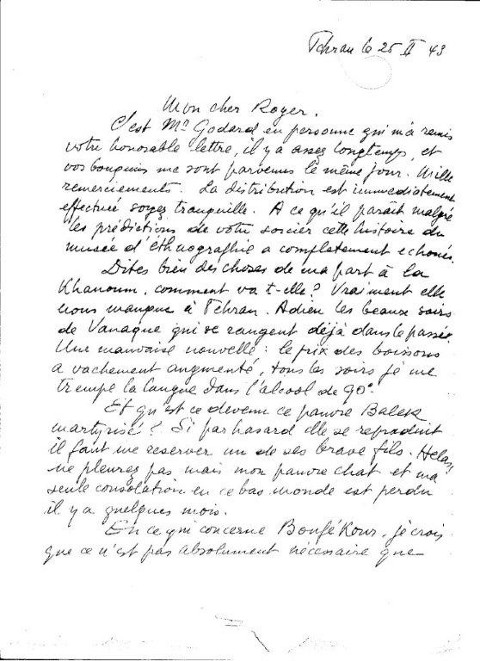 Tehran le 25 II 43
Mon cher Roger,
C'est Mr Godard en personne qui m'a remis
votre honorable lettre, il y a assez longtemps, et
vos bouquins me sont parvenus le même jour. Mille
remerciements. La distribution est immédiatement
effectuée soyez tranquille. A ce qu'il paraît malgré
les prédictions de votre sorcier cette histoire du
musée d'éthnographie a complètement echoué.
Dites bien des choses de ma part à la
Khanoum, comment va t-elle? Vraiment elle
nous manque à Tehran. Adieu les beaux soirs
de Vanaque qui se rangent déjà dans le passé.
Une mauvaise nouvelle : le prix des boissons
a vachement augmenté, tous les soirs je me
trempe la langue dans l'alcool de 90°.
Et qu'est ce devenu ce pauvre Balek
martyrisé? Si par hasard elle se reproduit
il faut me reserver un de ses brave fils. Helas,
ne pleurez pas mais mon pauvre chat et ma
seule consolation en ce bas monde est perdu
il y a quelques mois.
En ce qui concerne Boufé Kour, je crois
que ce n'est pas absolument nécessaire que